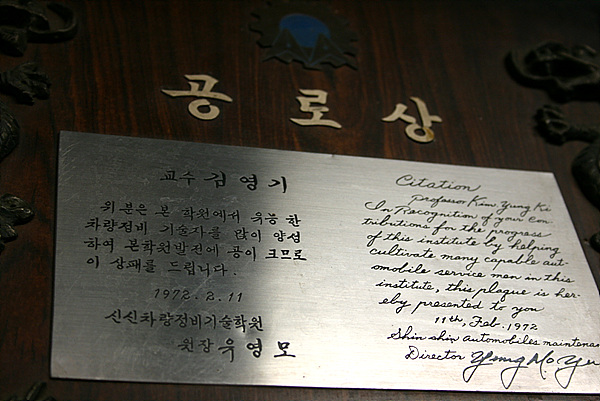 공로상
교수 김영기
위분은 본 학원에서 유능한
차량정비 기술자를 많이 양성
하여 본학원발전에 공이 크므로
이 상패를 드립니다.
1972.2.11
신신차량정비기술학원
원장 유영모
Citation
professor Kim Yung Ki
In Recognition of your Con-
tributions for the progress
of this institute by helping
cultivate many capable aut-
omobile service men in this
institute, this plaque is her-
eby presented to you
11th, Feb. 1972
Shin shin automobiles maintenan
Director Yung Mo Yu